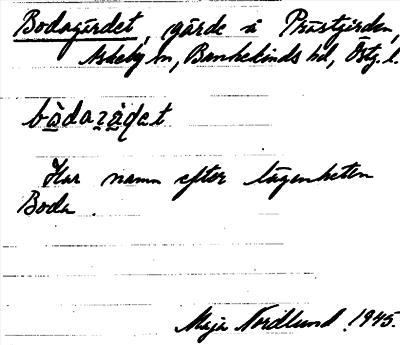 Bodagärdet, gärde å Prästgården,
Askeby sn, Bankekinds hd, Östg. l.
Har namn efter lägenheten
Boda.
Maja Nordlund 1945.